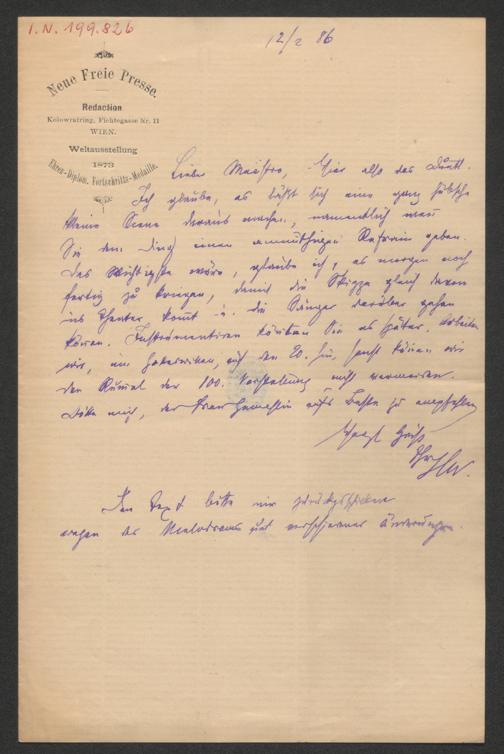 I.N. 199.826
12/2 86
Neue Freie Presse.
Redaction
Kolowratring, Fichtegasse Nr. 11
WIEN.
Weltausstellung
1873
Ehren-Diplom, Fortschritts-Medaille.
Lieber Maestro, Hier also das Duett.
Ich glaube, es läßt sich eine ganz hübsche
kleine Scene daraus machen, namentlich wenn
Sie dem Ding einen anmuthigen Refrain geben.
Das Wichtigste wäre, glaube ich, es morgen noch
fertig zu bringen, damit die Skizze gleich
ins Theater komt u. die Sänger darüber gehen
können. Instrumentiren könten Sie es später. Arbeiten
wir, um Gotteswillen, auf den 20. hin, sonst können wir
den Rumel der 100. Vorstellung nicht
Bitte mich, der Frau Gemahlin aufs Beste zu empfehlen
Herzl Gruß
Ihr
Den Text bitte mir
wegen des Melodrams und verschiedener Änderungen.